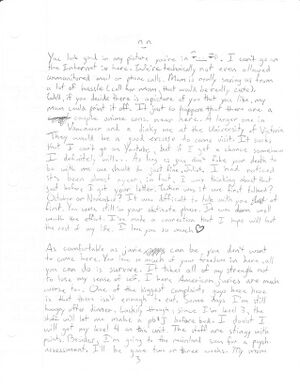 nn
You look good in my picture you're in ^-^. I can't go on
the Internet in here. We're technically not even allowed
unmonitored mail or phone calls. Mom is really saving us from
a lot of hassle (call her mom, that would be really cute).
Well, if you decide there is a picture of you that you like, my
mom could print it off. It just so happens that there are a
couple anime cons near here. A larger one in
Vancouver and a dinky one at the University of Victoria
They would be a good excuse to come visit. It sucks
that I can't go on Youtube, but if I get a chance sometime
I definitely will. As long as you don't fake your death to
be with me we should be just fine. I had noticed
it's been about a year, in fact I was thinking about that
just before I got your letter. When was it we first talked?
October or November? It was difficult to talk with you at
first. You were still in your obstinate phase. It was damn well
worth the effort. I've made a connection that I hope will last
the rest of my life. I love you so much ♡
As comfortable as juvie can be, you don't want
to come here. You lose so much of your freedom in here, all
you can do is survive. It takes all of my strength not
to lose my sense of self in here. American juvies are much
worse too. One of the biggest complaints guys have here
is that there isn't enough to eat. Some days I'm still
hungry after dinner. Luckily though, since I'm level 3, the
staff will let me make a pb&j before bed. I doubt I
will get my level 4 on this unit. The staff are stingy with
points. Besides, I'm going to the mainland soon for a psych-
assessment. I'll be gone two or three weeks. My mom
3